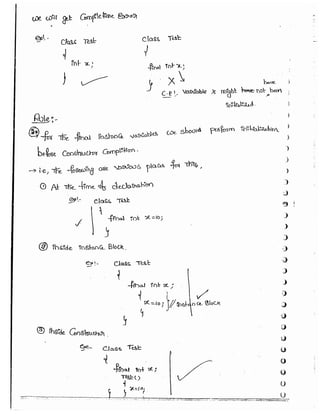 we will get Compiletime Error
Eg:- class Test class Test
{ {
int x; final int x;
} ✓ } X
C.E:- variable x might not have been
initialized.
Rule:-
for the final instance variables we should perform initialization
before constructor completion.
→ i.e, the following are various places for this,
① At the time of declaration
Eg:- class Test
{
✓ final int x=10;
}
② Inside Instance Block.
Eg:- class Test
{
final int x;
{
x=10; } // instance Block ✓
}
}
③ Inside Constructor.
Eg:- class Test
{
final int x;
Test()
{
x=10;
} } ✓